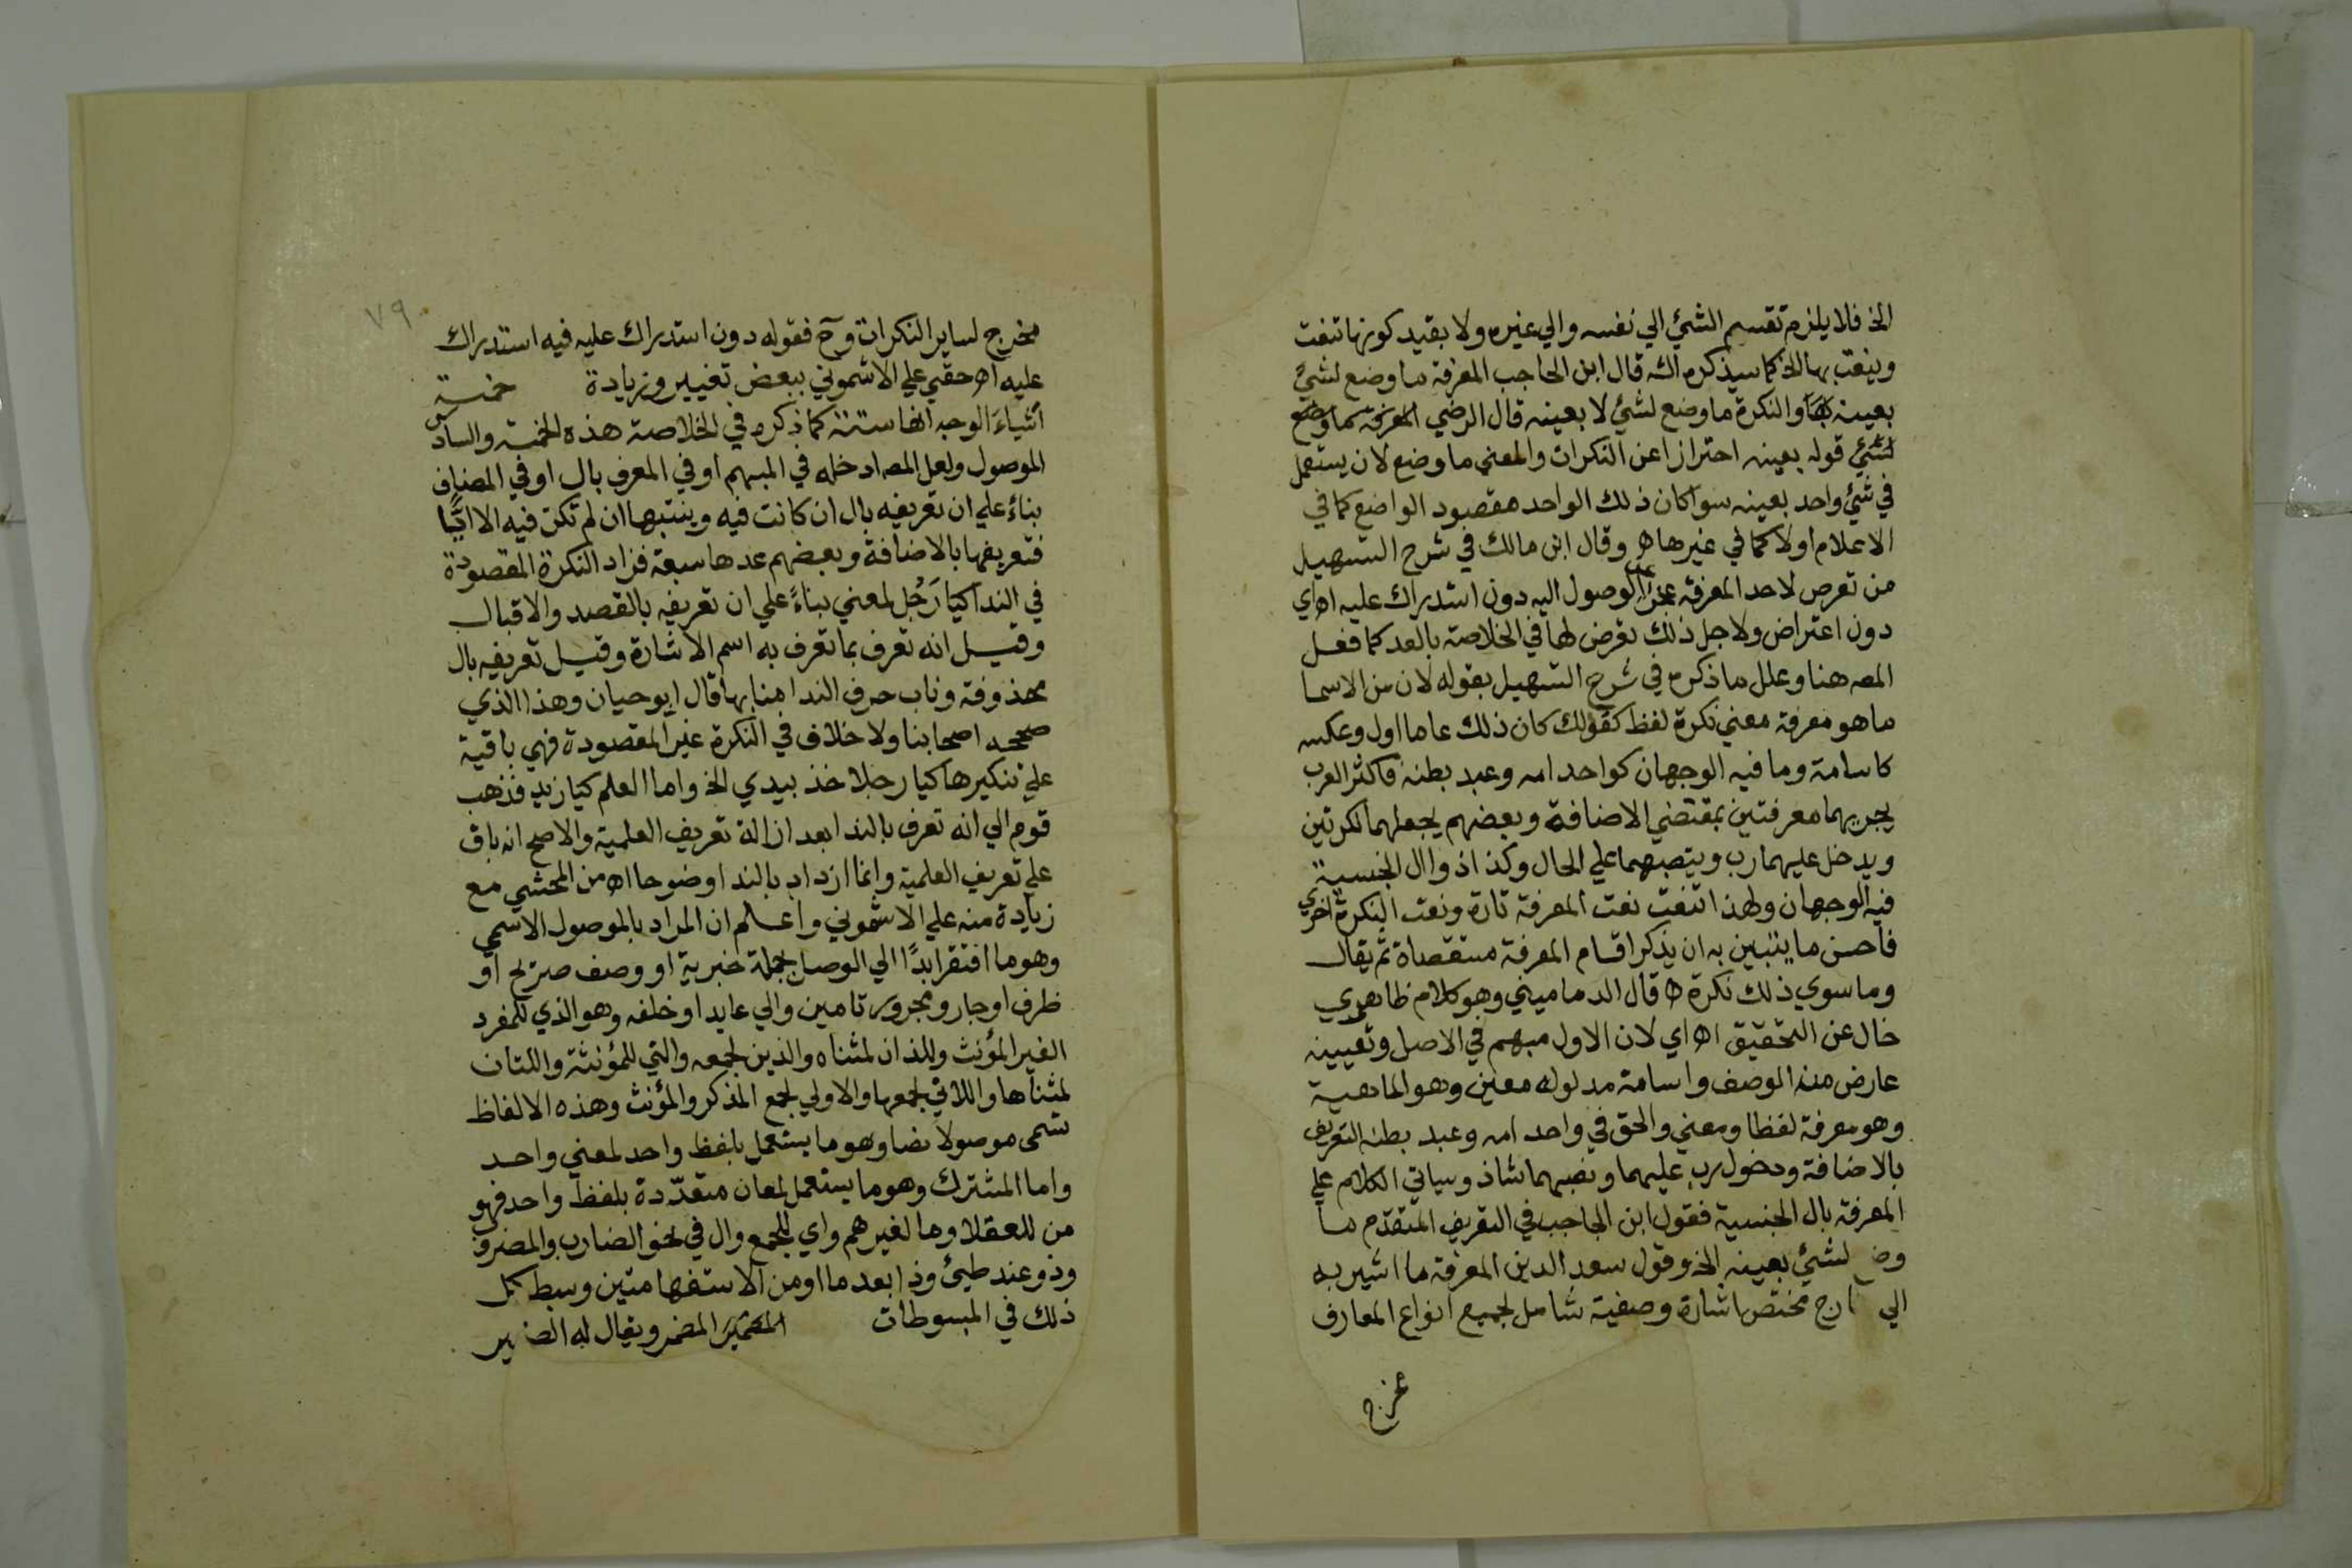 الخ فلا يلزم تقسيم الشئ الي نفسه والي غيره ولا بقيد كونها تنعت
وينعت بها الخ كما سيذكره الش قال ابن الحاجب المعرفة ما وضع لشئ
بعينه والنكرة ما وضع لشئ لا بعينه قال الرضي المعرفة ما وضع
لشئ قوله بعينه احترازا عن النكرات والمعني ما وضع لان يستعمل
في شئ واحد بعينه سوا كان ذلك الواحد مقصود الواضع كما في
الاعلام اولا كما في غيرها اه وقال ابن مالك في شرح التسهيل
من تعرض لاحد المعرفة عجز عن الوصول اليه دون استدراك عليه اه اي
دون اعتراض ولاجل ذلك تعرض لها في الخلاصة بالعد كما فعل
المص هنا وعلل ما ذكره في شرح التسهيل بقوله لان من الاسما
ما هو معرفة معني نكرة لفظ كقولك كان ذلك عاما اول وعكسه
كاسامة وما فيه الوجهان كواحد امه وعبد بطنه فاكثر العرب
يجريهما معرفتين بمقتضي الاضافة وبعضهم يجعلهما نكرتين
ويدخل عليهما رب وينصبهما علي الحال وكذا ذو ال الجنسية
فيه الوجهان ولهذا تنعت نعت المعرفة تارة ونعت النكرة اخري
فاحسن ما يتبين به ان يذكر اقسام المعرفة مستقصاة ثم يقال
وما سوي ذلك نكرة اه قال الدماميني وهو كلام ظاهري
خال عن التحقيق اه اي لان الاول مبهم في الاصل وتعيينه
عارض منه الوصف واسامة مدلوله معين وهو الماهية
وهو معرفة لفظا ومعني والحق في واحد امه وعبد بطنه التعريف
بالاضافة ودخول رب عليهما ونصبهما شاذ وسياتي الكلام علي
المعرفة بال الجنسية فقول ابن الحاجب في التعريف المتقدم ما
وضع لشئ بعينه الخ وقول سعد الدين المعرفة ما اشير به
الي خارج مختص اشارة وصفية شامل لجميع انواع المعارف
مخرج
٧٩
مخرج لساير النكرات وح فقوله دون استدراك عليه فيه استدراك
عليه اه حقي علي الاشموني ببعض تغيير وزيادة خمسة
اشياء الوجه انها ستة كما ذكره في الخلاصة هذه الخمسة والسادس
الموصول ولعل المص ادخله في المبهم او في المعرف بال او في المضاف
بناء علي ان تعريفه بال ان كانت فيه وبنيتها ان لم تكن فيه الا ايًّا
فتعريفها بالاضافة وبعضهم عدها سبعة فزاد النكرة المقصودة
في الندا كيا رَجُل لمعني بناءً علي ان تعريفه بالقصد والاقبال
وقيل انه تعرف بما تعرف به اسم الاشارة وقيل تعريفه بال
محذوفة وناب حرف الندا منابها قال ابو حيان وهذا الذي
صححه اصحابنا ولا خلاف في النكرة غير المقصودة فهي باقية
علي تنكيرها كيا رجلا خذ بيدي الخ واما العلم كيا زيد فذهب
قوم الي انه تعرف بالندا بعد ازالة تعريف العلمية والاصح انه باق
علي تعريف العلمية وانما ازداد بالندا وضوحا اه من المحشي مع
زيادة منه علي الاشموني واعلم ان المراد بالموصول الاسمي
وهو ما افتقر ابدًا الي الوصل بجملة خبرية او وصف صريح او
ظرف او جار ومجرور تامين والي عايد او خلفه وهو الذي للمفرد
الغير المؤنث واللذان لمثناه والذين لجمعه والتي للمؤنثة واللتان
لمثناها واللاتي لجمعها والاولي لجمع المذكر والمؤنث وهذه الالفاظ
تسمى موصولا نصا وهو ما يستعمل بلفظ واحد لمعني واحد
واما المشترك وهو ما يستعمل لمعان متعدّدة بلفظ واحد فهو
من للعقلا وما لغيرهم واي للجمع وال في نحو الضارب والمضروب
وذو عند طيئ وذا بعد ما او من الاستفهامتين وبسط كل
ذلك في المبسوطات المضمر ويقال له الضمير